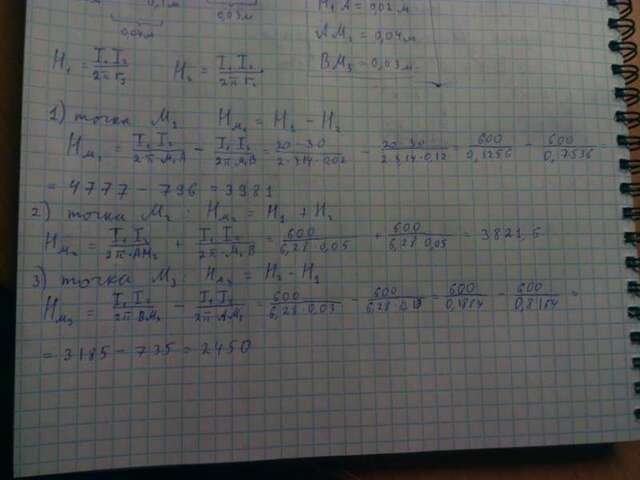 0,04м
0,03м
M₁A = 0,02м
AM₂ = 0,04м
BM₃ = 0,03м
H₁ = I₁ I₂ / 2π r₁   H₂ = I₁ I₂ / 2π r₂
1) точка M₁   Hм₁ = H₁ - H₂
Hм₁ = I₁ I₂ / 2π·M₁A - I₁ I₂ / 2π M₁B = 20·30 / 2·3,14·0,02 - 20·30 / 2·3,14·0,12 = 600 / 0,1256 - 600 / 0,7536 =
= 4777 - 796 = 3981
2) точка M₂ : Hм₂ = H₁ + H₂
Hм₂ = I₁ I₂ / 2π·AM₂ + I₁ I₂ / 2π·M₂B = 600 / 6,28·0,05 + 600 / 6,28·0,05 = 3821,6
3) точка M₃ : Hм₃ = H₂ - H₁
Hм₃ = I₁ I₂ / 2π BM₃ - I₁ I₂ / 2π·AM₃ = 600 / 6,28·0,03 - 600 / 6,28·0,13 = 600 / 0,1884 - 600 / 0,8164 =
= 3185 - 735 = 2450